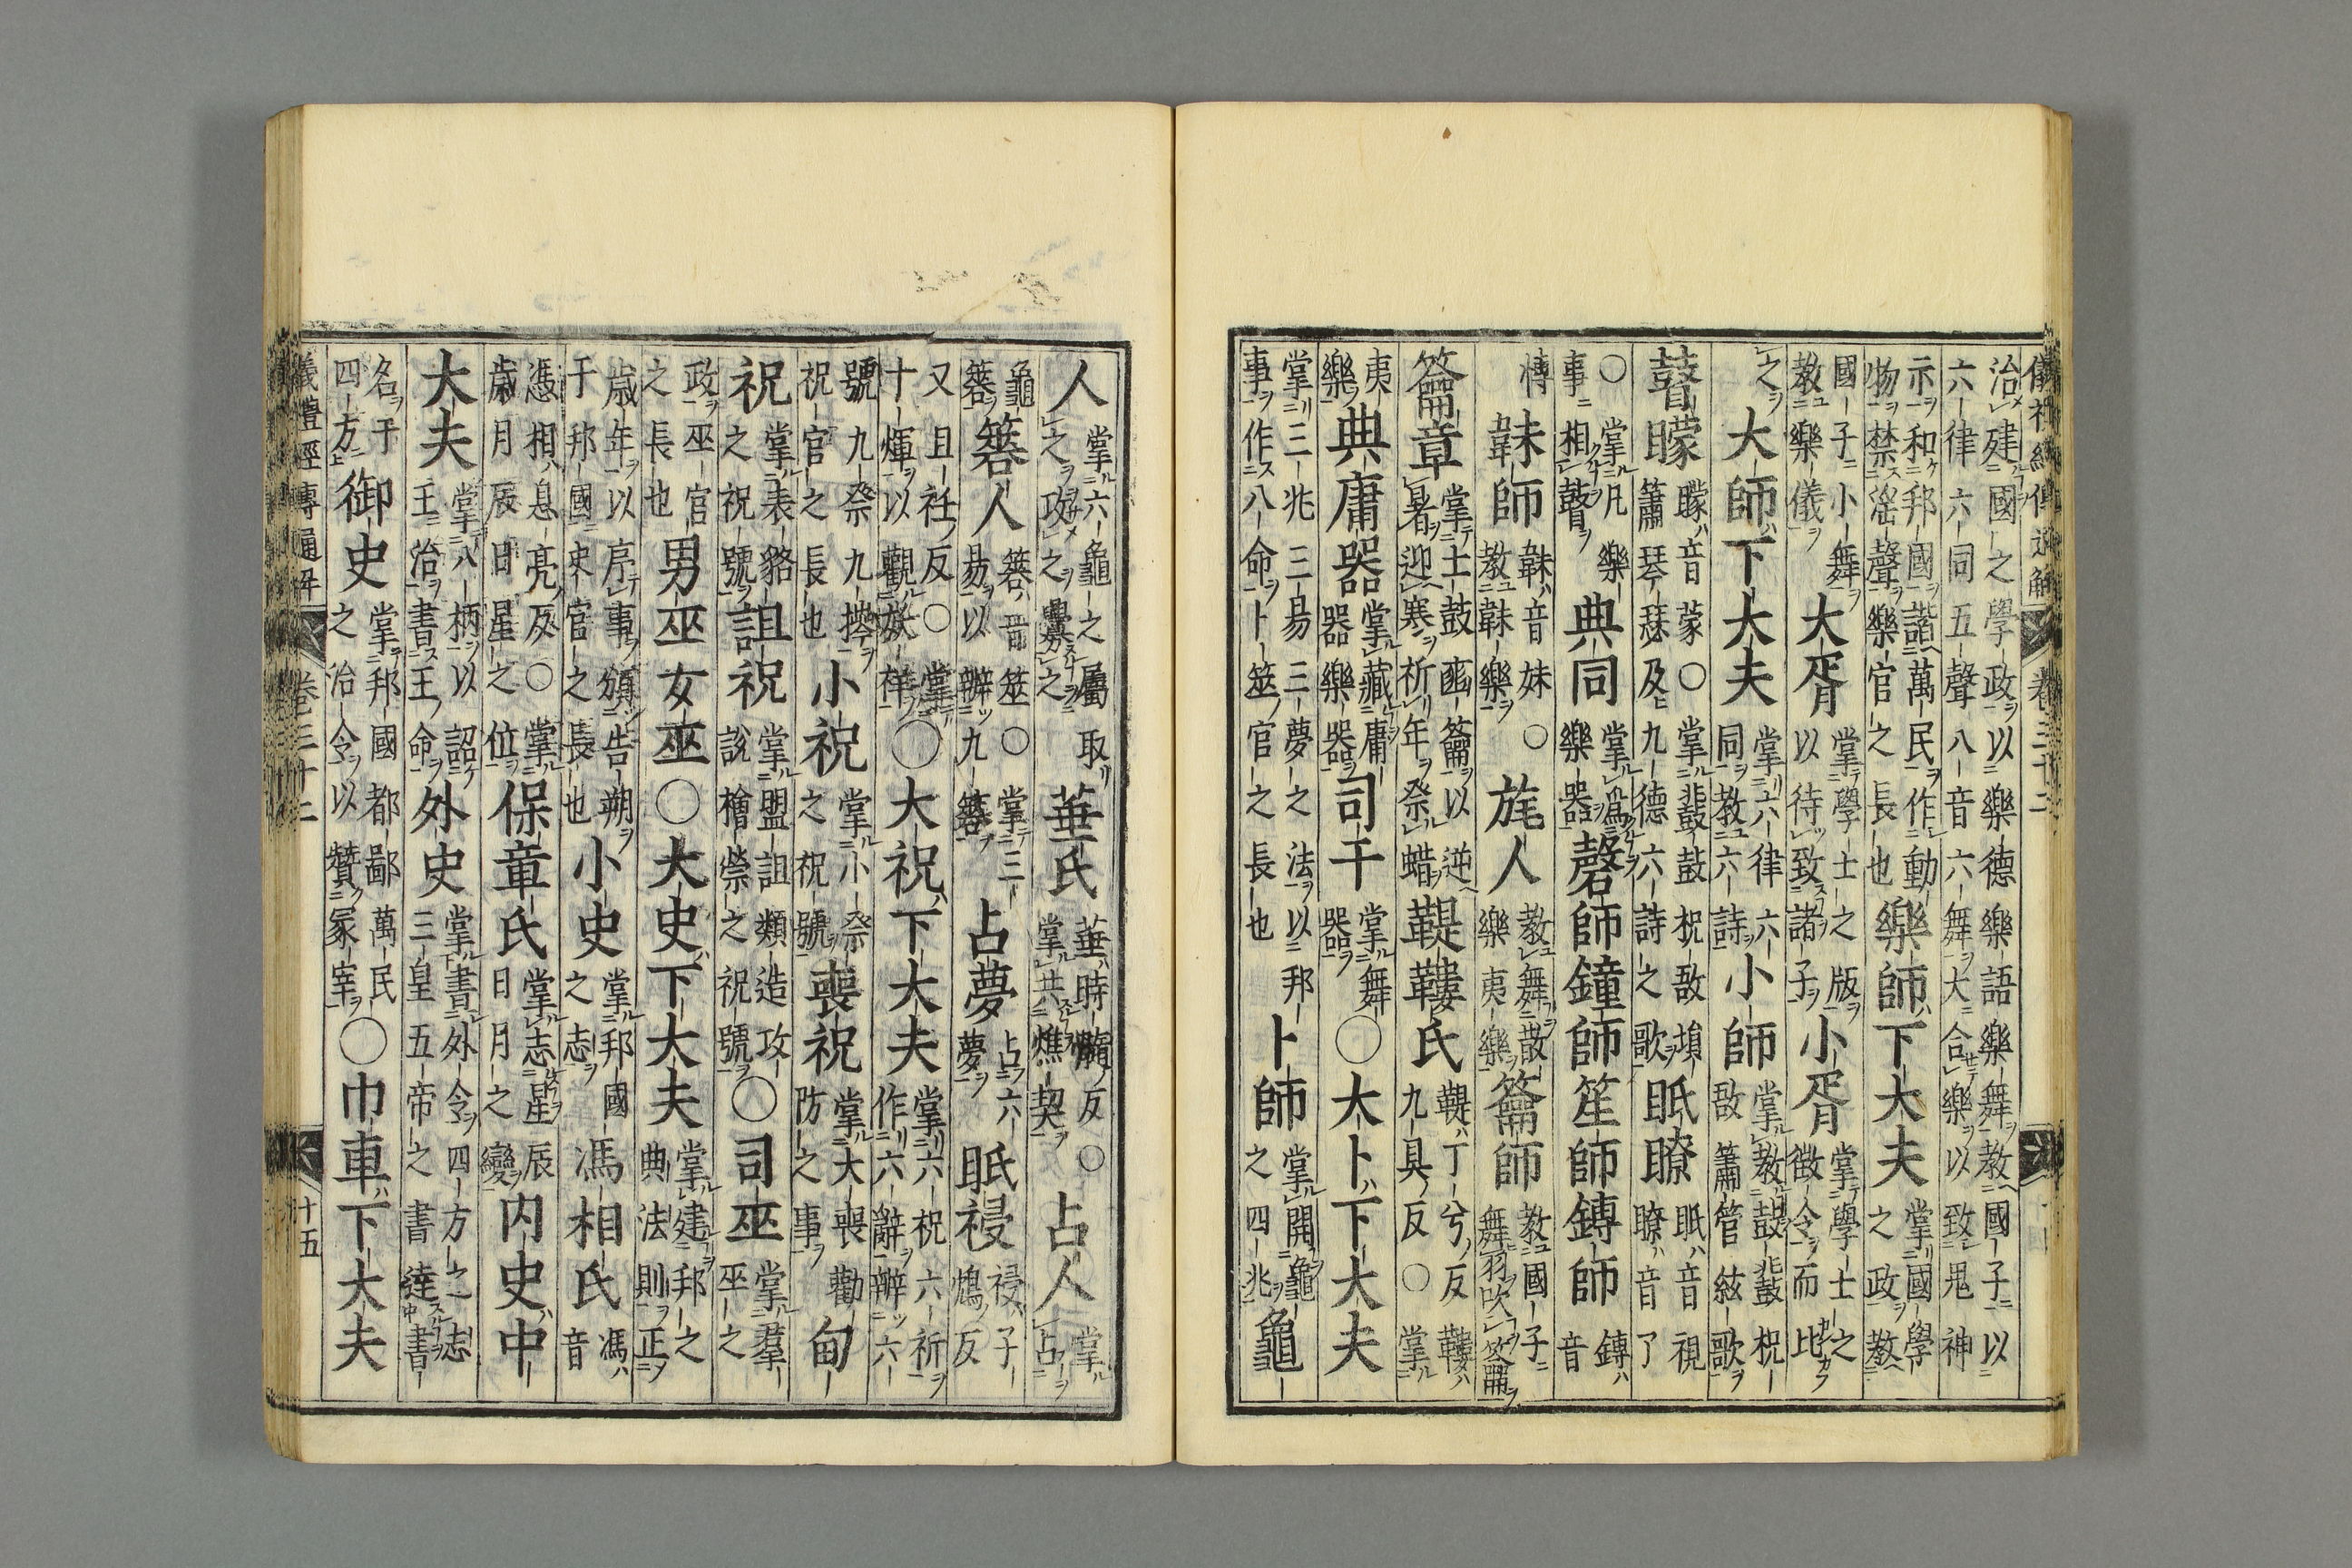 儀禮經傳通解 卷三十二
治建國之學政以樂德樂語樂舞教國子以
六律六同五聲八音六舞大合樂以致鬼神
示和邦國諧萬民作動
物禁淫聲樂官之長也
樂師下大夫
掌國學
之政教
國子小舞
教樂儀
大胥
掌學士之版
以待致諸子
小胥
掌學士之
徵令而比
之
大師下大夫
掌六律六
同教六詩
小師
掌教鼓鼗柷
敔簫管絃歌
瞽矇
矇音蒙○掌鼗鼓柷敔塤
簫琴瑟及九德六詩之歌
眡瞭
眡音視
瞭音了
○掌凡樂
事相瞽
典同
掌為
樂器
磬師鐘師笙師鏄師
鏄
音
愽
韎師
韎音妹○
教韎樂
旄人
教舞散
樂夷樂
籥師
教國子
舞羽吹籥
籥章
掌土鼓豳籥以逆
暑迎寒祈年祭蜡
鞮鞻氏
鞮丁兮反鞻
九具反○掌
夷
樂
典庸器
掌藏庸
器樂器
司干
掌舞
器
○大卜下大夫
掌三兆三易三夢之法以邦
事作八命卜筮官之長也
卜師
掌開龜
之四兆
龜
人
掌六龜之屬取
之攻之釁之
菙氏
菙時髓反○
掌共燋契
占人
掌
占
龜
簭
簭人
簭音筮○掌三
易以辨九簭
占夢
占六
夢
眡祲
祲子
鴆反
又且袵反○掌
十煇以觀妖祥
○大祝下大夫
掌六祝六祈
作六辭辨六
號九祭九
祝官之長也
小祝
掌小祭
之祝號
喪祝
掌大喪勸
防之事
甸
祝
掌表貉
之祝號
詛祝
掌盟詛類造攻
說禬禜之祝號
○司巫
掌羣
巫之
政巫官
之長也
男巫女巫○大史下大夫
掌建邦之
典法則正
歲年以序事頒告朔
于邦國史官之長也
小史
掌邦國
之志
馮相氏
馮
音
憑相息亮反○掌
歲月辰日星之位
保章氏
掌志星辰
日月之變
内史中
大夫
掌八柄以詔
王治書王命
外史
掌書外令四方之志
三皇五帝之書達書
名于
四方
御史
掌邦國都鄙萬民
之治令以贊冢宰
○巾車下大夫
儀禮經傳通解 卷三十二 十五